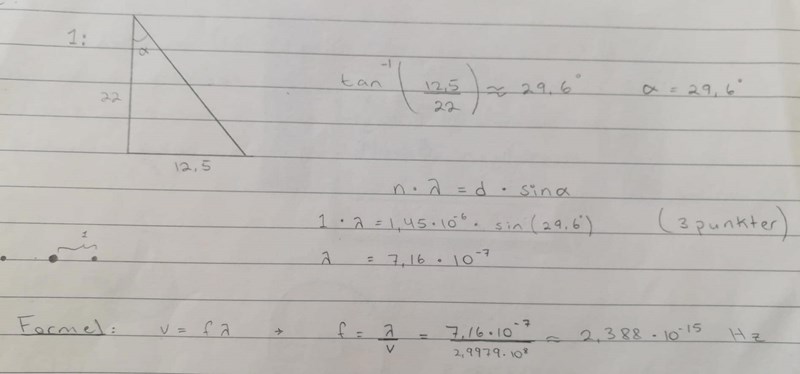 1:
α
22
12,5
tan⁻¹(12,5/22) ≈ 29,6° α = 29,6°
n · λ = d · sinα
1 · λ = 1,45·10⁻⁶ · sin(29,6°) (3 punkter)
1
λ = 7,16 · 10⁻⁷
Formel: v = fλ → f = λ/v = 7,16·10⁻⁷/2,9979·10⁸ ≈ 2,388 · 10⁻¹⁵ Hz